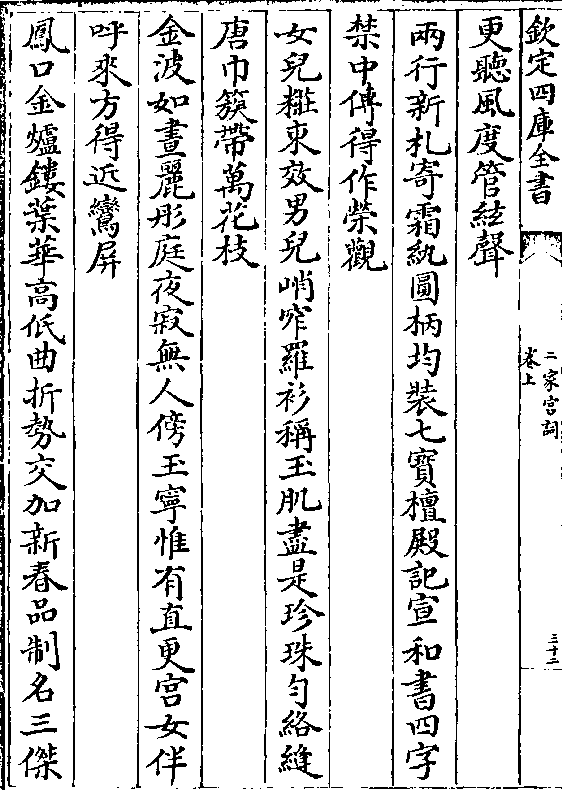 欽定四庫全書
二家宮詞
卷上
三十二
更聽風度管絃聲
兩行新札寄霜紈圓柄均裝七寶檀殿記宣和書四字
禁中傳得作榮觀
女兒糚束效男兒峭窄羅衫稱玉肌盡是珍珠勻絡縫
唐巾簇帶萬花枝
金波如晝麗彤庭夜寂無人傍玉寧惟有直更宮女伴
呼來方得近鸞屏
鳳口金爐鏤葉華高低曲折勢交加新春品制名三傑